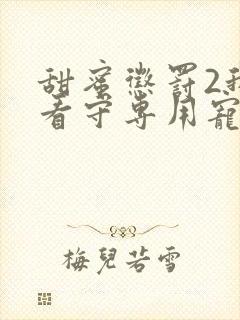 甜蜜懲罰2我
看守專用寵
梅兒若雪